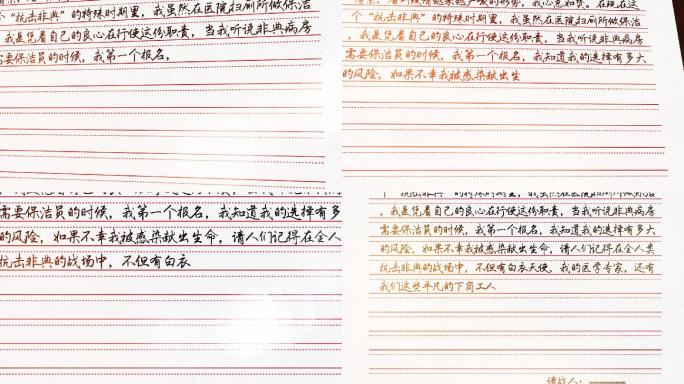 个"抗击非典"的特殊时期里，我虽然在医院扫厕所做保洁
，我是凭着自己的良心在行使这份职责，当我听说非典病房
需要保洁员的时候，我第一个报名，
个"抗击非典"的特殊时期里，我虽然在医院扫厕所做保洁
，我是凭着自己的良心在行使这份职责，当我听说非典病房
需要保洁员的时候，我第一个报名，我知道我的选择有多大
的风险，如果不幸我被感染献出生
需要保洁员的时候，我第一个报名，我知道我的选择有多
的风险，如果不幸我被感染献出生命，请人们记得在全人
抗击非典的战场中，不但有白衣
个"抗击非典"的特殊时期里，我虽然在医院扫厕所做保洁
，我是凭着自己的良心在行使这份职责，当我听说非典病房
需要保洁员的时候，我第一个报名，我知道我的选择有多大
的风险，如果不幸我被感染献出生命，请人们记得在全人类
抗击非典的战场中，不但有白衣天使、我的医学专家，还有
我们这些平凡的下岗工人
请战人：